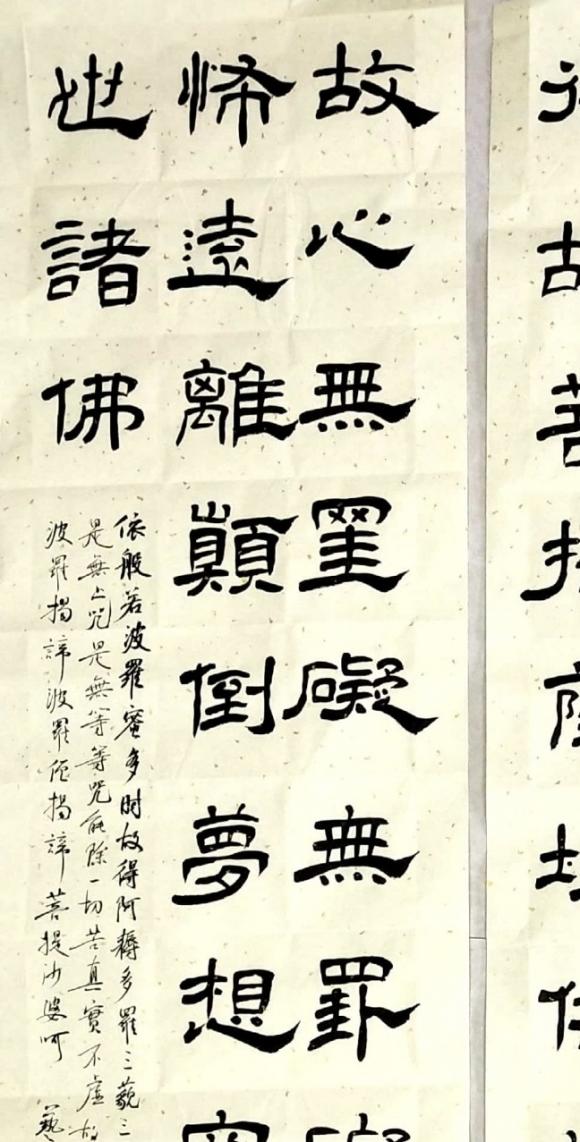 故心無罣礙無罫
悕遠離顛倒夢想
也諸佛
依般若波羅蜜多時故得阿耨多羅三藐三
是無上咒是無等等咒能除一切苦真實不虛故
波羅揭諦波羅僧揭諦菩提沙婆呵